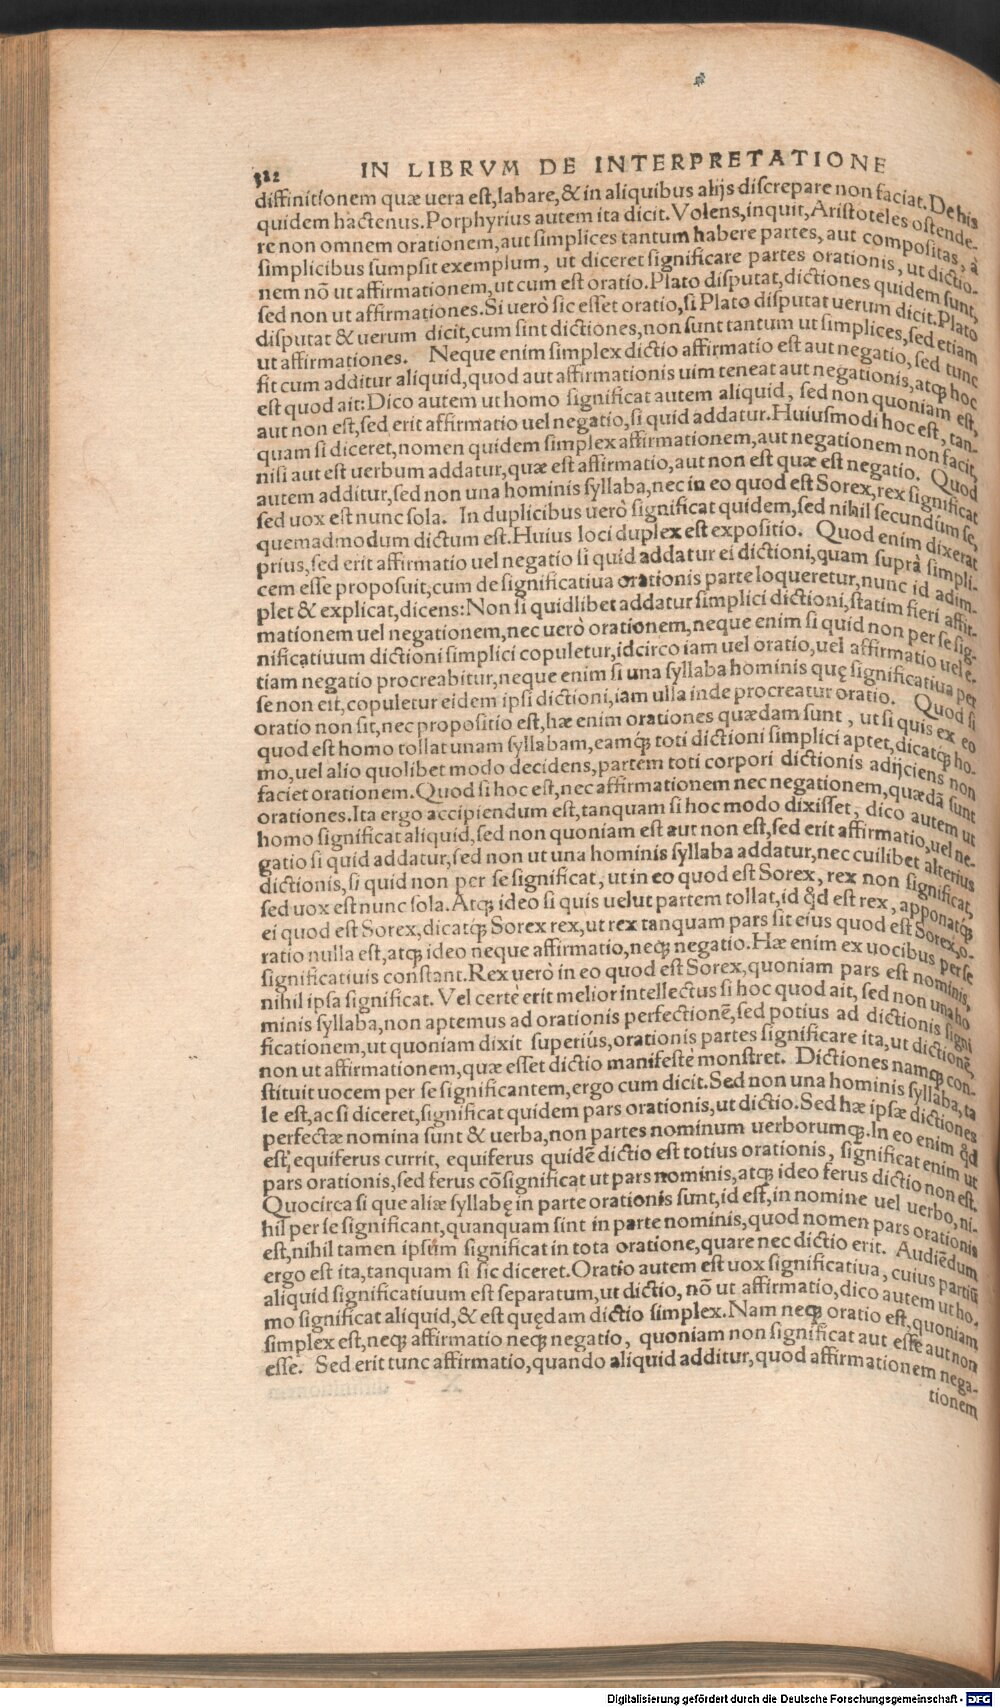 322 IN LIBRVM DE INTERPRETATIONE
diffinitionem quæ uera est, labare, & in aliquibus alijs discrepare non faciat. De his
quidem hactenus. Porphyrius autem ita dicit. Volens, inquit, Aristoteles ostende-
re non omnem orationem, aut simplices tantum habere partes, aut compositas, à
simplicibus sumpsit exemplum, ut diceret significare partes orationis, ut dictio-
nem nõ ut affirmationem, ut cum est oratio. Plato disputat, dictiones quidem sunt,
sed non ut affirmationes. Si uerò sic esset oratio, si Plato disputat uerum dicit. Plato
disputat & uerum dicit, cum sint dictiones, non sunt tantum ut simplices, sed etiam
ut affirmationes. Neque enim simplex dictio affirmatio est aut negatio, sed tunc
fit cum additur aliquid, quod aut affirmationis uim teneat aut negationis, atq; hoc
est quod ait: Dico autem ut homo significat autem aliquid, sed non quoniam est,
aut non est, sed erit affirmatio uel negatio, si quid addatur. Huiusmodi hoc est, tan-
quam si diceret, nomen quidem simplex affirmationem, aut negationem non facit,
nisi aut est uerbum addatur, quæ est affirmatio, aut non est quæ est negatio. Quod
autem additur, sed non una hominis syllaba, nec in eo quod est Sorex, rex significat
sed uox est nunc sola. In duplicibus uerò significat quidem, sed nihil secundùm se,
quemadmodum dictum est. Huius loci duplex est expositio. Quod enim dixerat
prius, sed erit affirmatio uel negatio si quid addatur ei dictioni, quam suprà simpli-
cem esse proposuit, cum de significatiua orationis parte loqueretur, nunc id adim-
plet & explicat, dicens: Non si quidlibet addatur simplici dictioni, statim fieri affir-
mationem uel negationem, nec uerò orationem, neque enim si quid non per se sig-
nificatiuum dictioni simplici copuletur, idcirco iam uel oratio, uel affirmatio uel e-
tiam negatio procreabitur, neque enim si una syllaba hominis quę significatiua per
se non eit, copuletur eidem ipsi dictioni, iam ulla inde procreatur oratio. Quod si
oratio non sit, nec propositio est, hæ enim orationes quædam sunt, ut si quis ex eo
quod est homo tollat unam syllabam, eamq́; toti dictioni simplici aptet, dicatq́; ho-
mo, uel alio quolibet modo decidens, partem toti corpori dictionis adijciens non
faciet orationem. Quod si hoc est, nec affirmationem nec negationem, quædã sunt
orationes. Ita ergo accipiendum est, tanquam si hoc modo dixisset, dico autem ut
homo significat aliquid, sed non quoniam est aut non est, sed erit affirmatio, uel ne-
gatio si quid addatur, sed non ut una hominis syllaba addatur, nec cuilibet alterius
dictionis, si quid non per se significat, ut in eo quod est Sorex, rex non significat,
sed uox est nunc sola. Atq; ideo si quis uelut partem tollat, id q̃d est rex, apponatq́;
ei quod est Sorex, dicatq́; Sorex rex, ut rex tanquam pars sit eius quod est Sorex, o-
ratio nulla est, atq; ideo neque affirmatio, neq; negatio. Hæ enim ex uocibus per se
significatiuis constant. Rex uerò in eo quod est Sorex, quoniam pars est nominis,
nihil ipsa significat. Vel certè erit melior intellectus si hoc quod ait, sed non una ho
minis syllaba, non aptemus ad orationis perfectionẽ, sed potius ad dictionis signi
ficationem, ut quoniam dixit superiùs, orationis partes significare ita, ut dictionẽ,
non ut affirmationem, quæ esset dictio manifestè monstret. Dictiones namq; con-
stituit uocem per se significantem, ergo cum dicit. Sed non una hominis syllaba, ta
le est, ac si diceret, significat quidem pars orationis, ut dictio. Sed hæ ipsæ dictiones
perfectæ nomina sunt & uerba, non partes nominum uerborumq́;. In eo enim q̃d
est, equiferus currit, equiferus quidẽ dictio est totius orationis, significat enim ut
pars orationis, sed ferus cõsignificat ut pars nominis, atq; ideo ferus dictio non est.
Quocirca si que aliæ syllabę in parte orationis sunt, id est, in nomine uel uerbo, ni-
hil per se significant, quanquam sint in parte nominis, quod nomen pars orationis
est, nihil tamen ipsũm significat in tota oratione, quare nec dictio erit. Audiẽdum
ergo est ita, tanquam si sic diceret. Oratio autem est uox significatiua, cuius partiũ
aliquid significatiuum est separatum, ut dictio, nõ ut affirmatio, dico autem ut ho,
mo significat aliquid, & est quędam dictio simplex. Nam neq; oratio est, quoniam
simplex est, neq; affirmatio neq; negatio, quoniam non significat aut esse aut non
esse. Sed erit tunc affirmatio, quando aliquid additur, quod affirmationem nega-
tionem
Digitalisierung gefördert durch die Deutsche Forschungsgemeinschaft - DFG